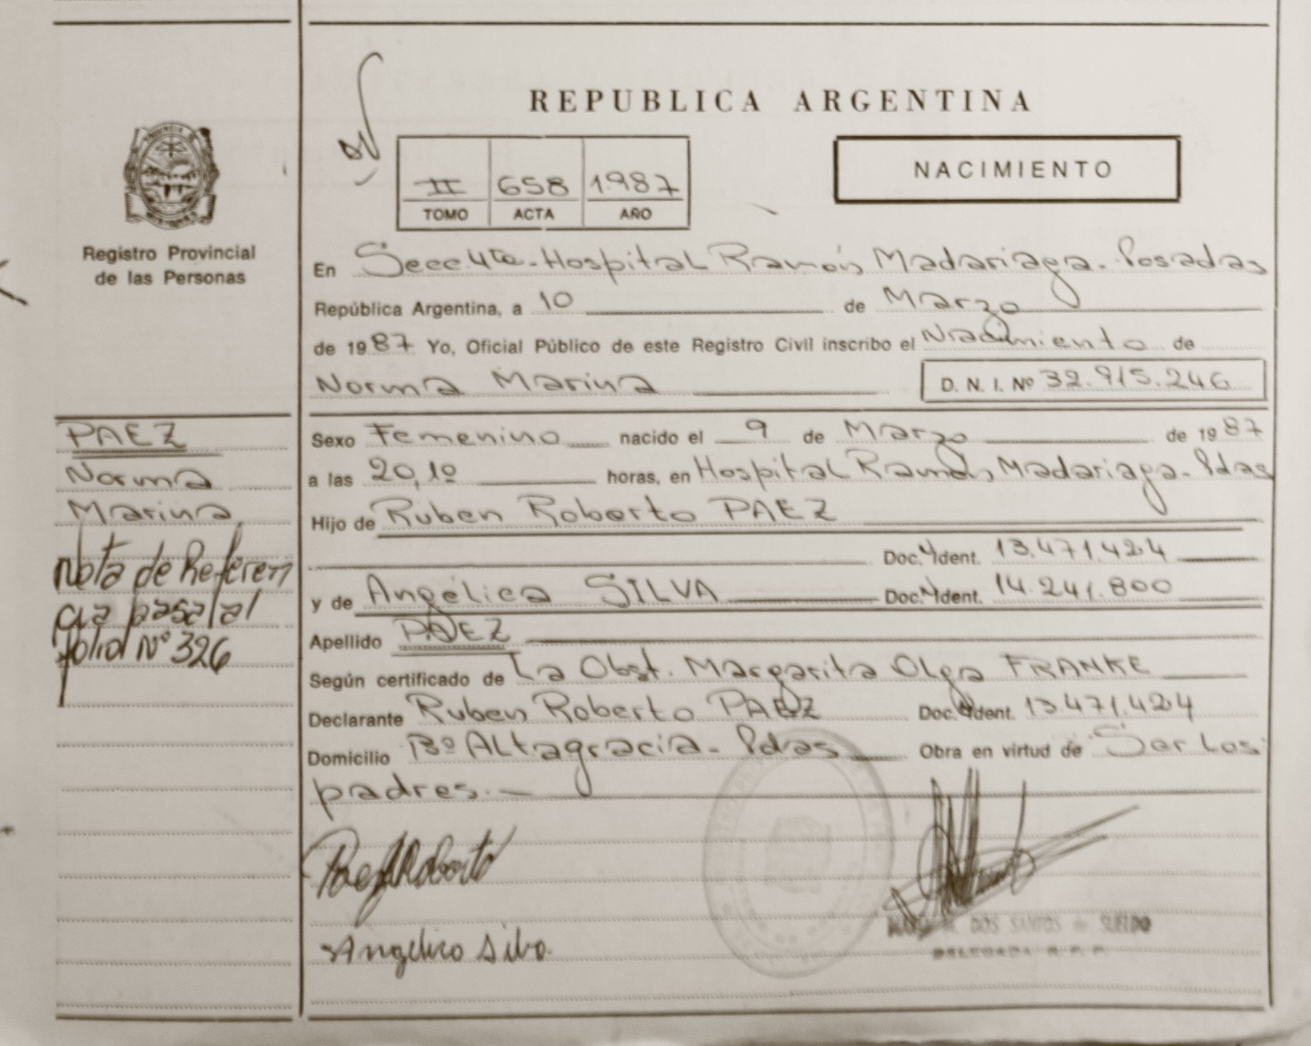 REPUBLICA ARGENTINA
NACIMIENTO
II 658 1.987
TOMO ACTA AÑO
Registro Provincial
de las Personas
En Secc. 4ta. Hospital Ramón Madariaga. Posadas
República Argentina, a 10 de Marzo
de 1987 Yo, Oficial Público de este Registro Civil inscribo el Nacimiento de
Norma Marina D. N. I. Nº 32.915.246
PAEZ
Norma
Marina
Nota de Referen
cia pasa al
folio Nº 326
Sexo Femenino nacido el 9 de Marzo de 1987
a las 20,10 horas, en Hospital Ramón Madariaga. Pdas
Hijo de Ruben Roberto PAEZ
Doc. Ident. 13.471.424
y de Angélica SILVA Doc. Ident. 14.241.800
Apellido PAEZ
Según certificado de La Obst. Margarita Olga FRANKE
Declarante Ruben Roberto PAEZ Doc. Ident. 13471.424
Domicilio Bº Altagracia. Pdas Obra en virtud de Ser Los
padres.-
Paez Roberto
Angelica Silva.
DOS SANTOS de SUELDO
DELEGADA R.P.P.